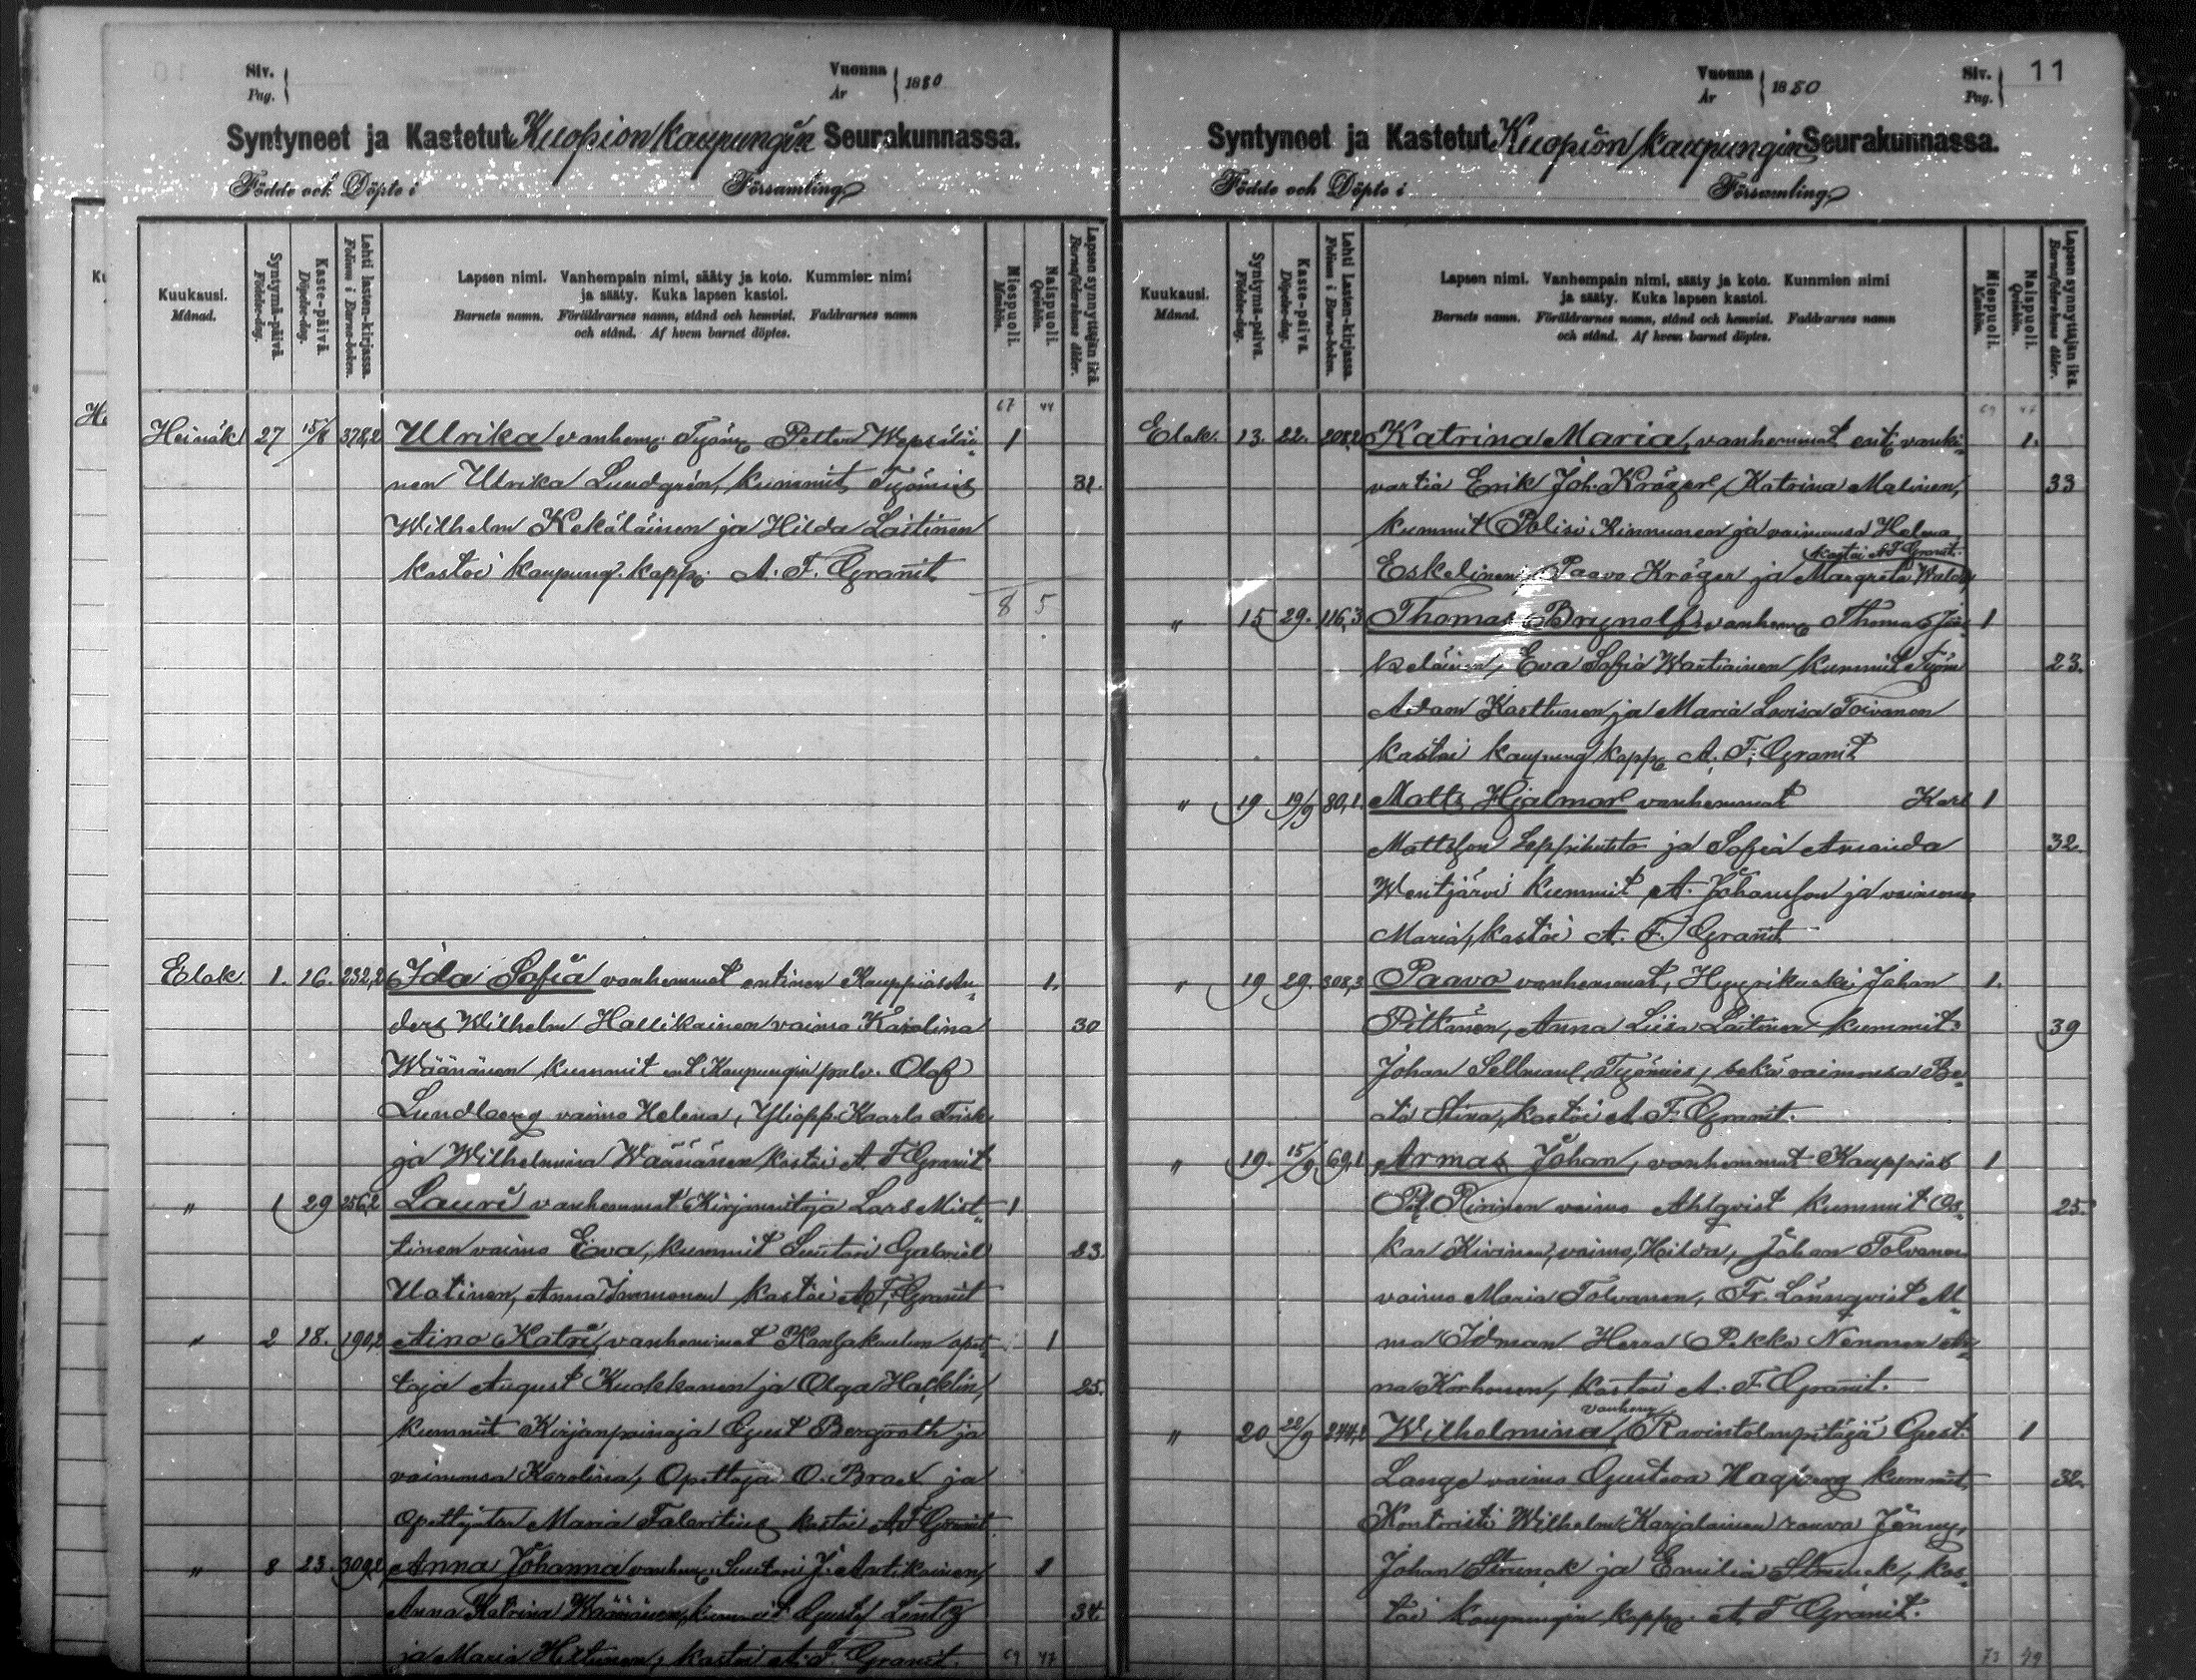 Siv.
Pag.
Vuonna
År
1880
Syntyneet ja Kastetut Kuopion kaupungin Seurakunnassa.
Födde och Döpte i Församling
Kuukausi.
Månad.
Syntymä-päivä.
Födelse-dag.
Kaste-päivä.
Döpelse-dag.
Lehti lasten-kirjassa.
Folium i Barna-boken.
Lapsen nimi. Vanhempain nimi, sääty ja koto. Kummien nimi
ja sääty. Kuka lapsen kastoi.
Barnets namn. Föräldrarnes namn, stånd och hemvist. Faddrarnes namn
och stånd. Af hvem barnet döptes.
Miespuoli.
Mankön.
Naispuoli.
Qvinkön.
Lapsen synnyttäjän ikä.
Barnaföderskans ålder.
67 44
Heinäk 27 15/8 378,2 Ulrika vanhem. Työm. Petter Wepsäläi- 1
nen Ulrika Lundgrén, kummit Työmies 31.
Wilhelm Kekäläinen ja Hilda Laitinen
kastoi kaupung. kapp. A. F. Granit
8 5
Elok. 1. 16. 232,2 Ida Sofia vanhemmat entinen Kauppias An- 1.
ders Wilhelm Hallikainen vaimo Karolina 30
Wäänänen kummit ent Kaupungin palv. Olof
Lundberg vaimo Helena, Yliopp. Kaarlo Frisk
ja Wilhelmina Wäänänen kastoi A. F Granit
" 1 29 256,2 Lauri vanhemmat Kirjansitoja Lars Mist- 1
tinen vaimo Eva, kummit Suutari Gabriel 23.
Uotinen, Anna Immonen kastoi A. F. Granit
" 2 18. 190,2 Aino Katri, vanhemmat Kansakoulun opet- 1
taja August Kuokkanen ja Olga Hacklin, 25.
kummit Kirjanpainaja Gust Bergroth ja
vaimonsa Karolina, Opettaja O. Brax ja
Opettajatar Maria kastoi A. F Granit.
" 8 23. 309,2 Anna Johanna vanhem. Suutari J. Antikainen, 1
Anna Katrina Wäänänen, kummit Gustaf Lentz 34.
ja Maria Hiltunen, kastoi A. F. Granit.
69 47
Vuonna
År
1880
Siv.
Pag.
11
Syntyneet ja Kastetut Kuopion kaupungin Seurakunnassa.
Födde och Döpte i Församling
Kuukausi.
Månad.
Syntymä-päivä.
Födelse-dag.
Kaste-päivä.
Döpelse-dag.
Lehti Lasten-kirjassa.
Folium i Barna-boken.
Lapsen nimi. Vanhempain nimi, sääty ja koto. Kummien nimi
ja sääty. Kuka lapsen kastoi.
Barnets namn. Föräldrarnes namn, stånd och hemvist. Faddrarnes namn
och stånd. Af hvem barnet döptes.
Miespuoli.
Mankön.
Naispuoli.
Qvinkön.
Lapsen synnyttäjän ikä.
Barnaföderskans ålder.
69 47
Elok. 13. 22. 208,2 Katrina Maria, vanhemmat ent. vanki- 1.
vartia Erik Joh. Kröger, Katrina Malinen, 33
kummit Polisi Kinnunen ja vaimonsa Helena
kastoi A F Granit.
Eskelinen, Paavo Kröger ja Margreta
" 15 29. 116,3 Thomas Brynolf vanhem. Thomas Jäs- 1
keläinen, Eva Sofia Wartiainen kummit Työm 23.
Adam Karttunen ja Maria Lovisa Toivanen
kastoi kaupung kapp. A. F. Granit
" 19 19/9 80,1. Matts Hjalmar vanhemmat Karl 1
Mattsson ja Sofia Amanda 32.
Wentjärvi kummit A. Johansson ja vaimonsa
Maria, kastoi A. F. Granit
" 19 29. 308,3 Paavo vanhemmat, Hyyrikuski Johan 1.
Pitkänen, Anna Liisa Laitinen kummit 39
Johan Sellman, Työmies, sekä vaimonsa Be-
ata Stina, kastoi A F. Granit.
" 19. 15/9 69,1 Armas Johan, vanhemmat Kauppias 1
P. Ririnen vaimo Ahlqvist kummit Os- 25.
kar Kivinen, vaimo, Hilda, Johan Tolvanen
vaimo Maria Tolvanen, Fr. Lönnqvist Al-
ma Idman Herra Pekka Nenonen An-
na Korhonen, kastoi A. F Granit.
vanhem
" 20 22/9 244,2 Wilhelmina, Ravintolanpitäjä Gust. 1
Lange vaimo Gustava Hagberg kummit 32.
Kontoristi Wilhelm Karjalainen rouva Jenny,
Johan Strunck ja Emilia Strunck, kas-
toi kaupungin kapp. A. F Granit.
73 49